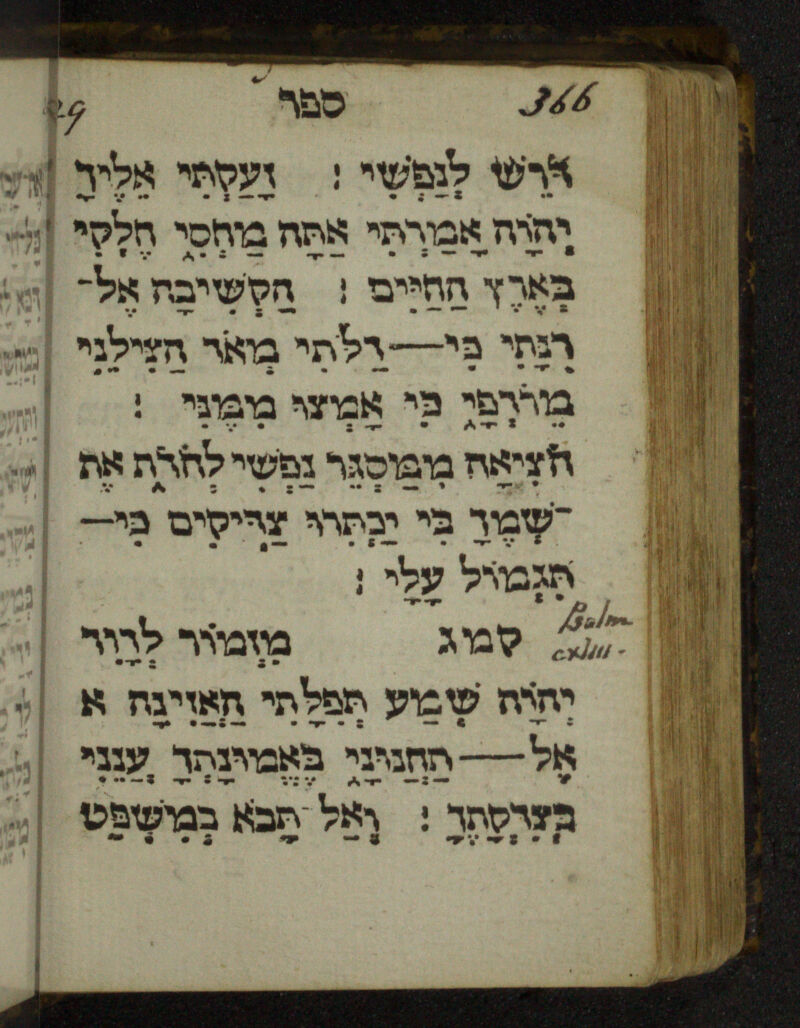 366 ספר
דֹּרֵשׁ לְנַפְשִׁי ׃ זָעַקְתִּי אֵלֶיךָ
יְהוָה אָמַרְתִּי אַתָּה מַחְסִי חֶלְקִי
בְּאֶרֶץ הַחַיִּים ׃ הַקְשִׁיבָה אֶל־
רִנָּתִי כִּי—דַלּוֹתִי מְאֹד הַצִּילֵנִי
מֵרֹדְפַי כִּי אָמְצוּ מִמֶּנִּי ׃
הוֹצִיאָה מִמַּסְגֵּר נַפְשִׁי לְהֹדוֹת אֶת
־שְׁמֶךָ בִּי יַכְתִּרוּ צַדִּיקִים כִּי—
תִגְמוֹל עָלָי ׃
Psalm cxliii. קמג מִזְמוֹר לְדָוִד
יְהוָה שְׁמַע תְּפִלָּתִי הַאֲזִינָה א
אֶל—תַּחֲנוּנַי בֶּאֱמוּנָתְךָ עֲנֵנִי
בְּצִדְקָתֶךָ ׃ וְאַל־תָּבֹא בְמִשְׁפָּט